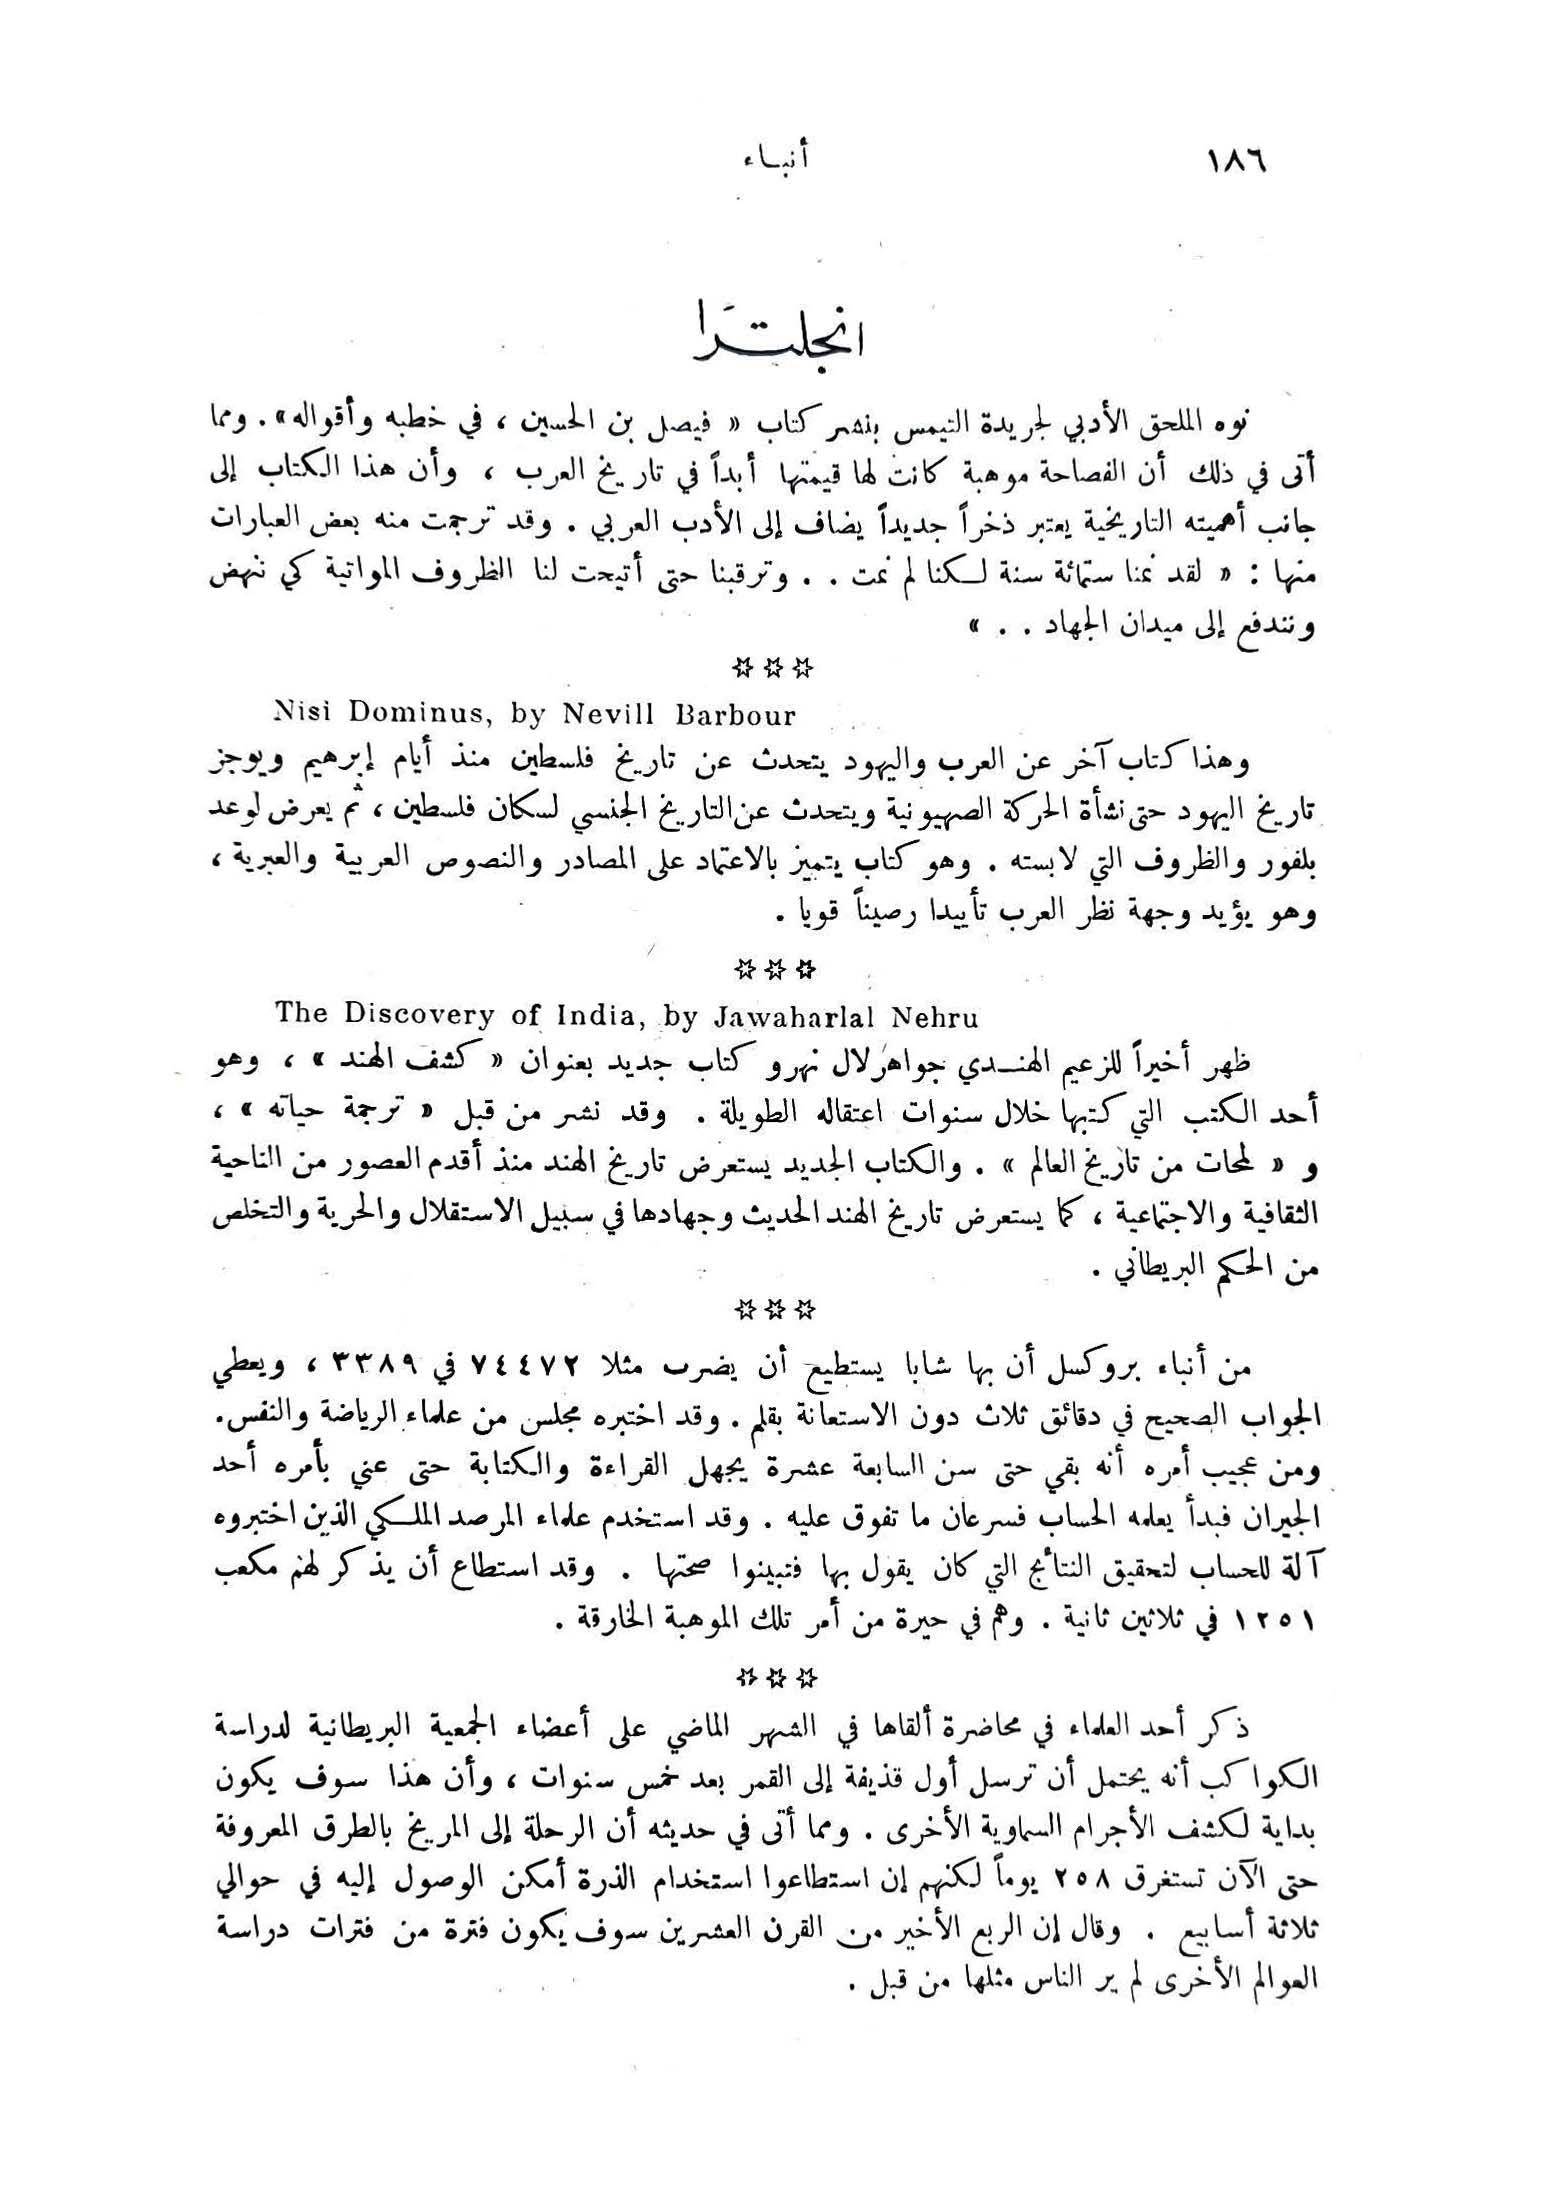 ١٨٦
أنباء
انجلترَا
نوه الملحق الأدبي لجريدة التيمس بنشر كتاب « فيصل بن الحسين ، في خطبه وأقواله » . ومما
أتى في ذلك أن الفصاحة موهبة كانت لها قيمتها أبداً في تاريخ العرب ، وأن هذا الكتاب إلى
جانب أهميته التاريخية يعتبر ذخراً جديداً يضاف إلى الأدب العربي . وقد ترجمت منه بعض العبارات
منها : « لقد نمنا ستمائة سنة لكنا لم نمت . . وترقبنا حتى أتيحت لنا الظروف المواتية كي ننهض
وندفع إلى ميدان الجهاد . . »
☆☆☆
Nisi Dominus, by Nevill Barbour
وهذا كتاب آخر عن العرب واليهود يتحدث عن تاريخ فلسطين منذ أيام إبرهيم ويوجز
تاريخ اليهود حتى نشأة الحركة الصهيونية ويتحدث عن التاريخ الجنسي لسكان فلسطين ، ثم يعرض لوعد
بلفور والظروف التي لابسته . وهو كتاب يتميز بالاعتماد على المصادر والنصوص العربية والعبرية ،
وهو يؤيد وجهة نظر العرب تأييدا رصيناً قويا .
☆☆☆
The Discovery of India, by Jawaharlal Nehru
ظهر أخيراً للزعيم الهندي جواهرلال نهرو كتاب جديد بعنوان « كشف الهند » ، وهو
أحد الكتب التي كتبها خلال سنوات اعتقاله الطويلة . وقد نشر من قبل « ترجمة حياته » ،
و « لمحات من تاريخ العالم » . والكتاب الجديد يستعرض تاريخ الهند منذ أقدم العصور من الناحية
الثقافية والاجتماعية ، كما يستعرض تاريخ الهند الحديث وجهادها في سبيل الاستقلال والحرية والتخلص
من الحكم البريطاني .
☆☆☆
من أنباء بروكسل أن بها شابا يستطيع أن يضرب مثلا ٧٤٤٧٢ في ٣٣٨٩ ، ويعطي
الجواب الصحيح في دقائق ثلاث دون الاستعانة بقلم . وقد اختبره مجلس من علماء الرياضة والنفس .
ومن عجيب أمره أنه بقي حتى سن السابعة عشرة يجهل القراءة والكتابة حتى عني بأمره أحد
الجيران فبدأ يعلمه الحساب فسرعان ما تفوق عليه . وقد استخدم علماء المرصد الملكي الذين اختبروه
آلة للحساب لتحقيق النتائج التي كان يقول بها فتبينوا صحتها . وقد استطاع أن يذكر لهم مكعب
١٢٥١ في ثلاثين ثانية . وهم في حيرة من أمر تلك الموهبة الخارقة .
☆☆☆
ذكر أحد العلماء في محاضرة ألقاها في الشهر الماضي على أعضاء الجمعية البريطانية لدراسة
الكواكب أنه يحتمل أن ترسل أول قذيفة إلى القمر بعد خمس سنوات ، وأن هذا سوف يكون
بداية لكشف الأجرام السماوية الأخرى . ومما أتى في حديثه أن الرحلة إلى المريخ بالطرق المعروفة
حتى الآن تستغرق ٢٥٨ يوماً لكنهم إن استطاعوا استخدام الذرة أمكن الوصول إليه في حوالي
ثلاثة أسابيع . وقال إن الربع الأخير من القرن العشرين سوف يكون فترة من فترات دراسة
العوالم الأخرى لم ير الناس مثلها من قبل .